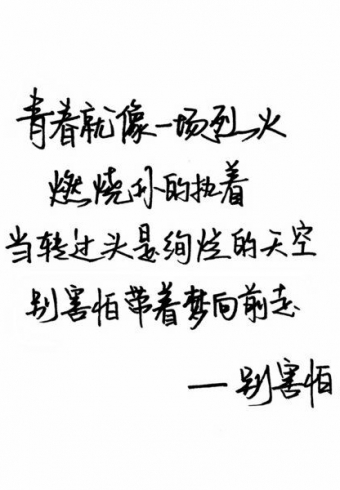 青春就像一场烈火
燃烧你的执着
当转过头是绚烂的天空
别害怕带着梦向前走
——别害怕